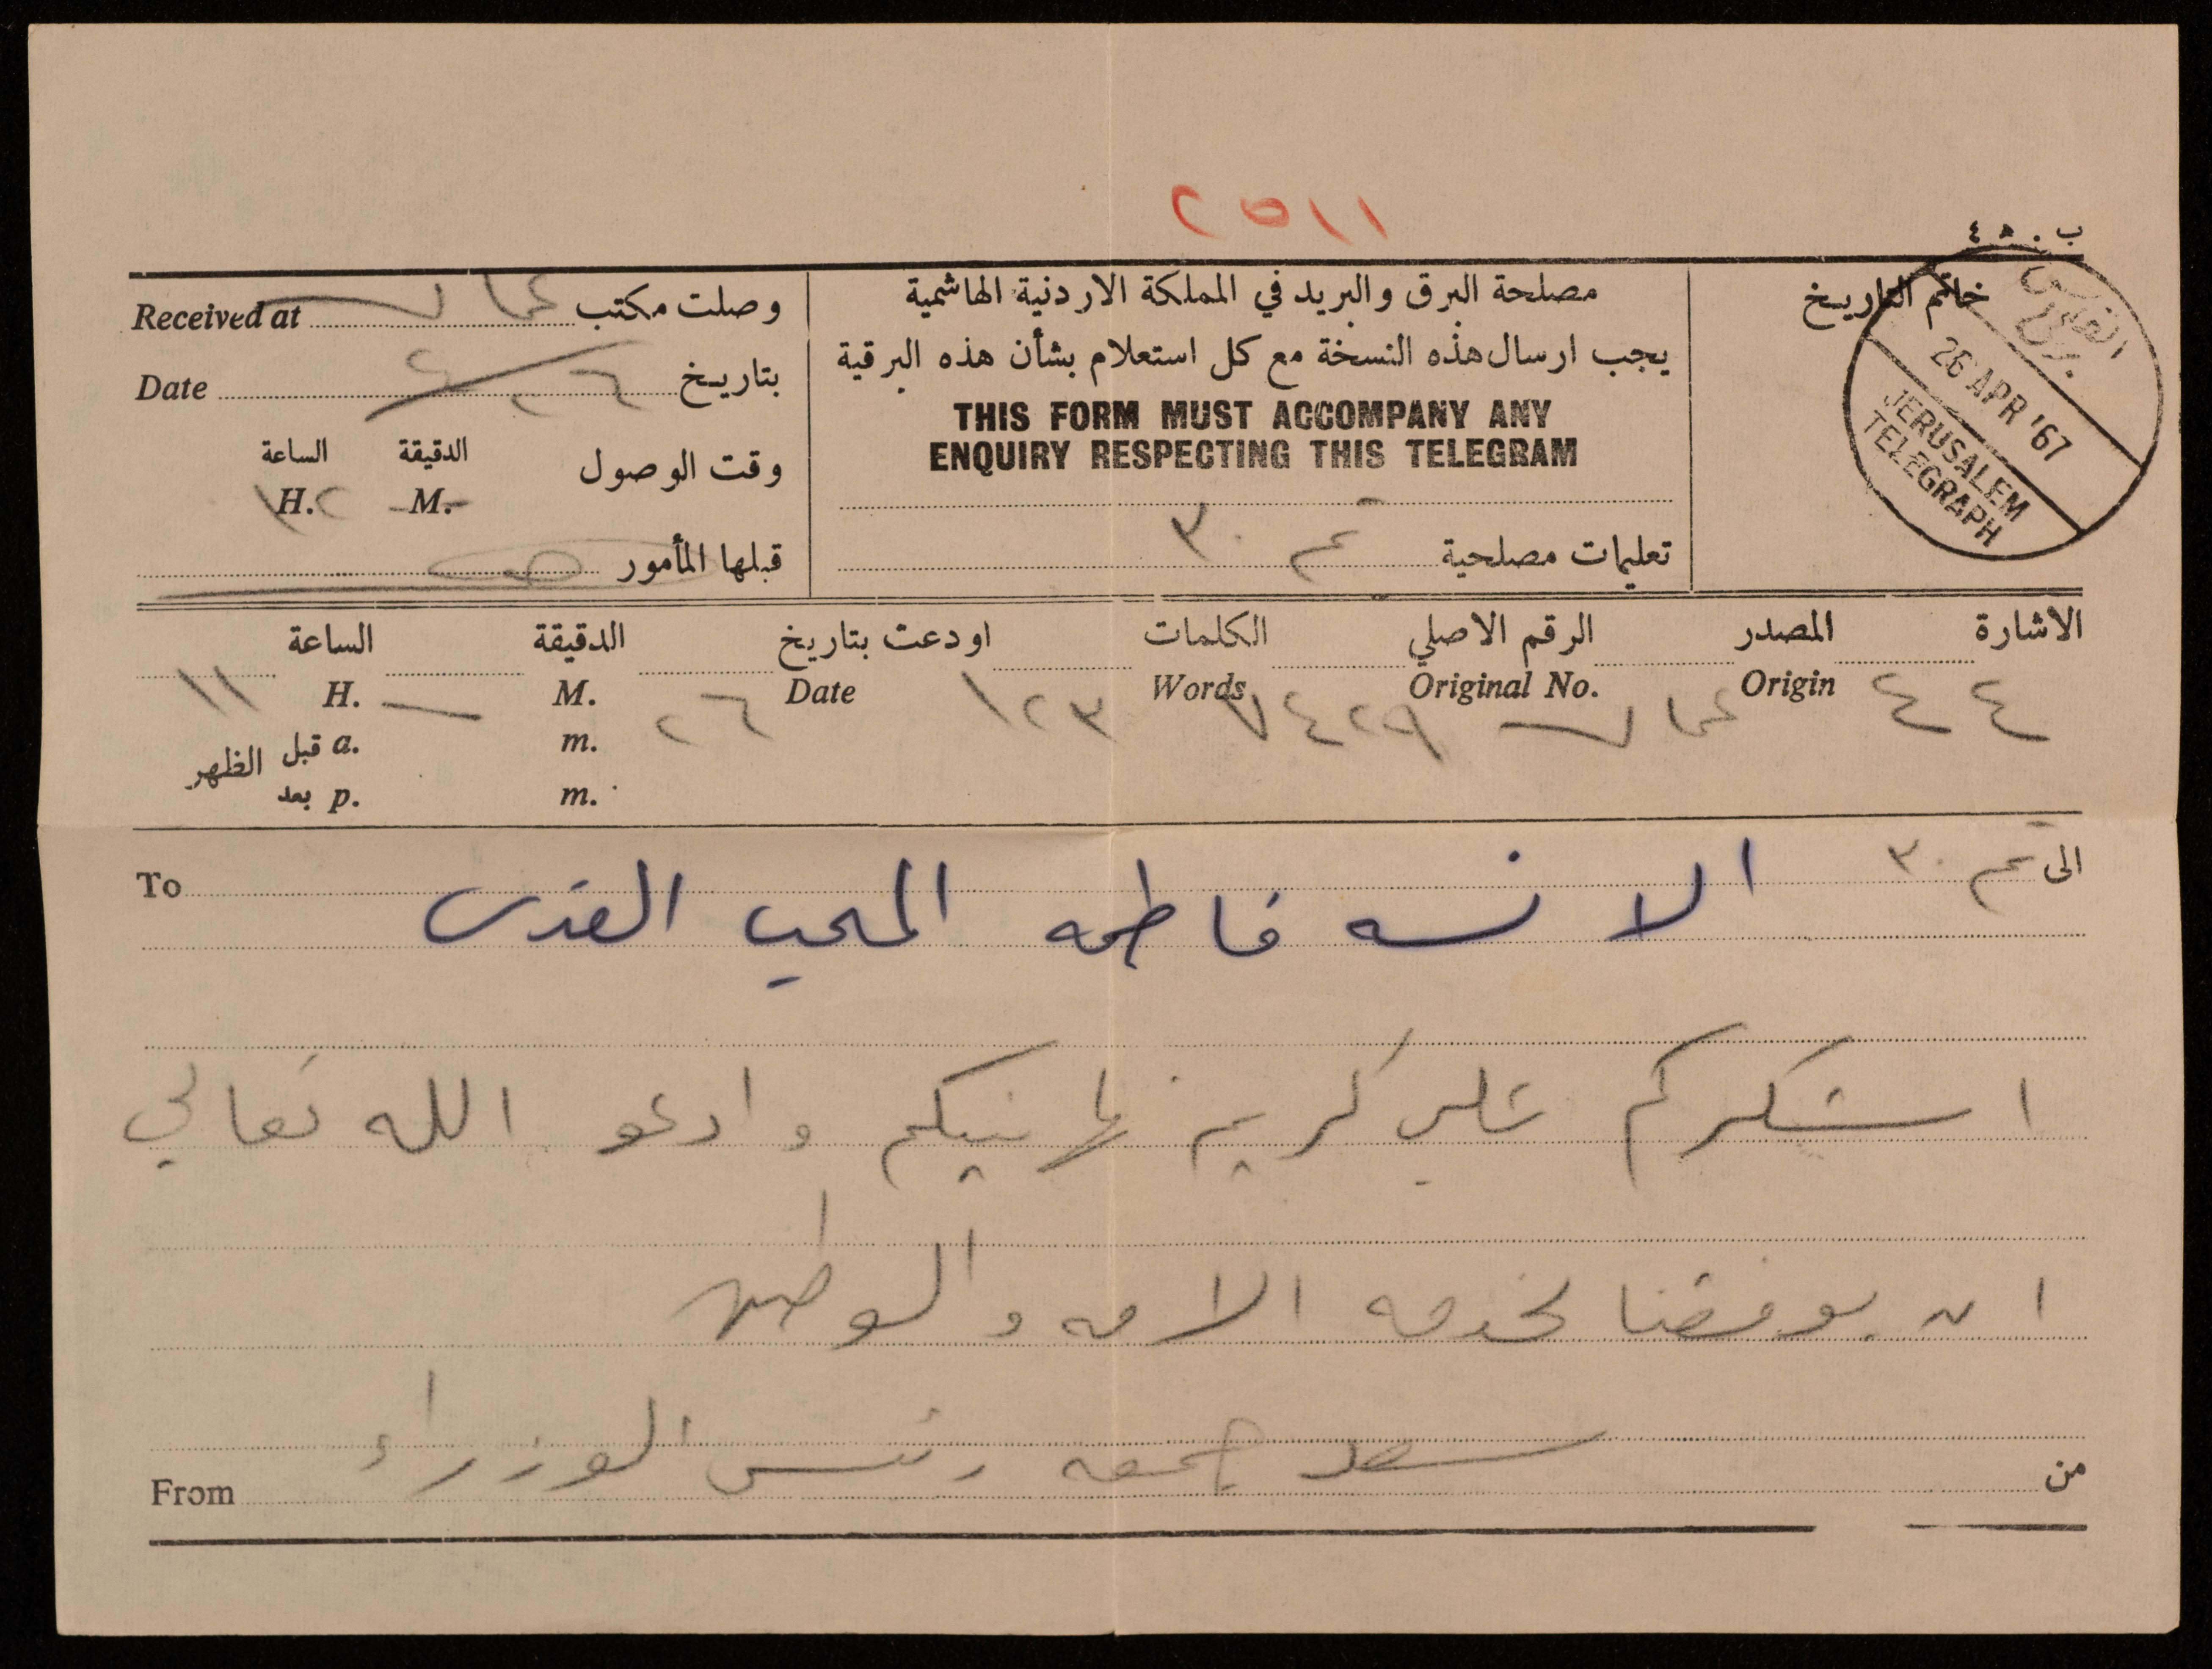 ١١٥٢
ب. ٤٥
خاتم التاريخ
القدس
برق
26 APR '67
JERUSALEM
TELEGRAPH
مصلحة البرق والبريد في المملكة الاردنية الهاشمية
يجب ارسال هذه النسخة مع كل استعلام بشأن هذه البرقية
THIS FORM MUST ACCOMPANY ANY
ENQUIRY RESPECTING THIS TELEGRAM
تعليمات مصلحية ٣٠
وصلت مكتب عمان Received at
بتاريخ ٢٦/٤ Date
وقت الوصول الدقيقة الساعة
M. H. ١٢
قبلها المأمور
الاشارة المصدر الرقم الاصلي الكلمات اودعت بتاريخ الدقيقة الساعة
٤٤ Origin عمان Original No. ٧٤٢٩ Words ١٢٣ Date ٢٦ M. — H. ١١
m. a. قبل الظهر
m. p. بعد
الى ٣٠ To
الانسه فاطمه المحب القدس
اشكركم على كريم تهانيكم وادعو الله تعالى
ان يوفقنا لخدمه الامه والوطن
من سعد جمعه رئيس الوزراء From